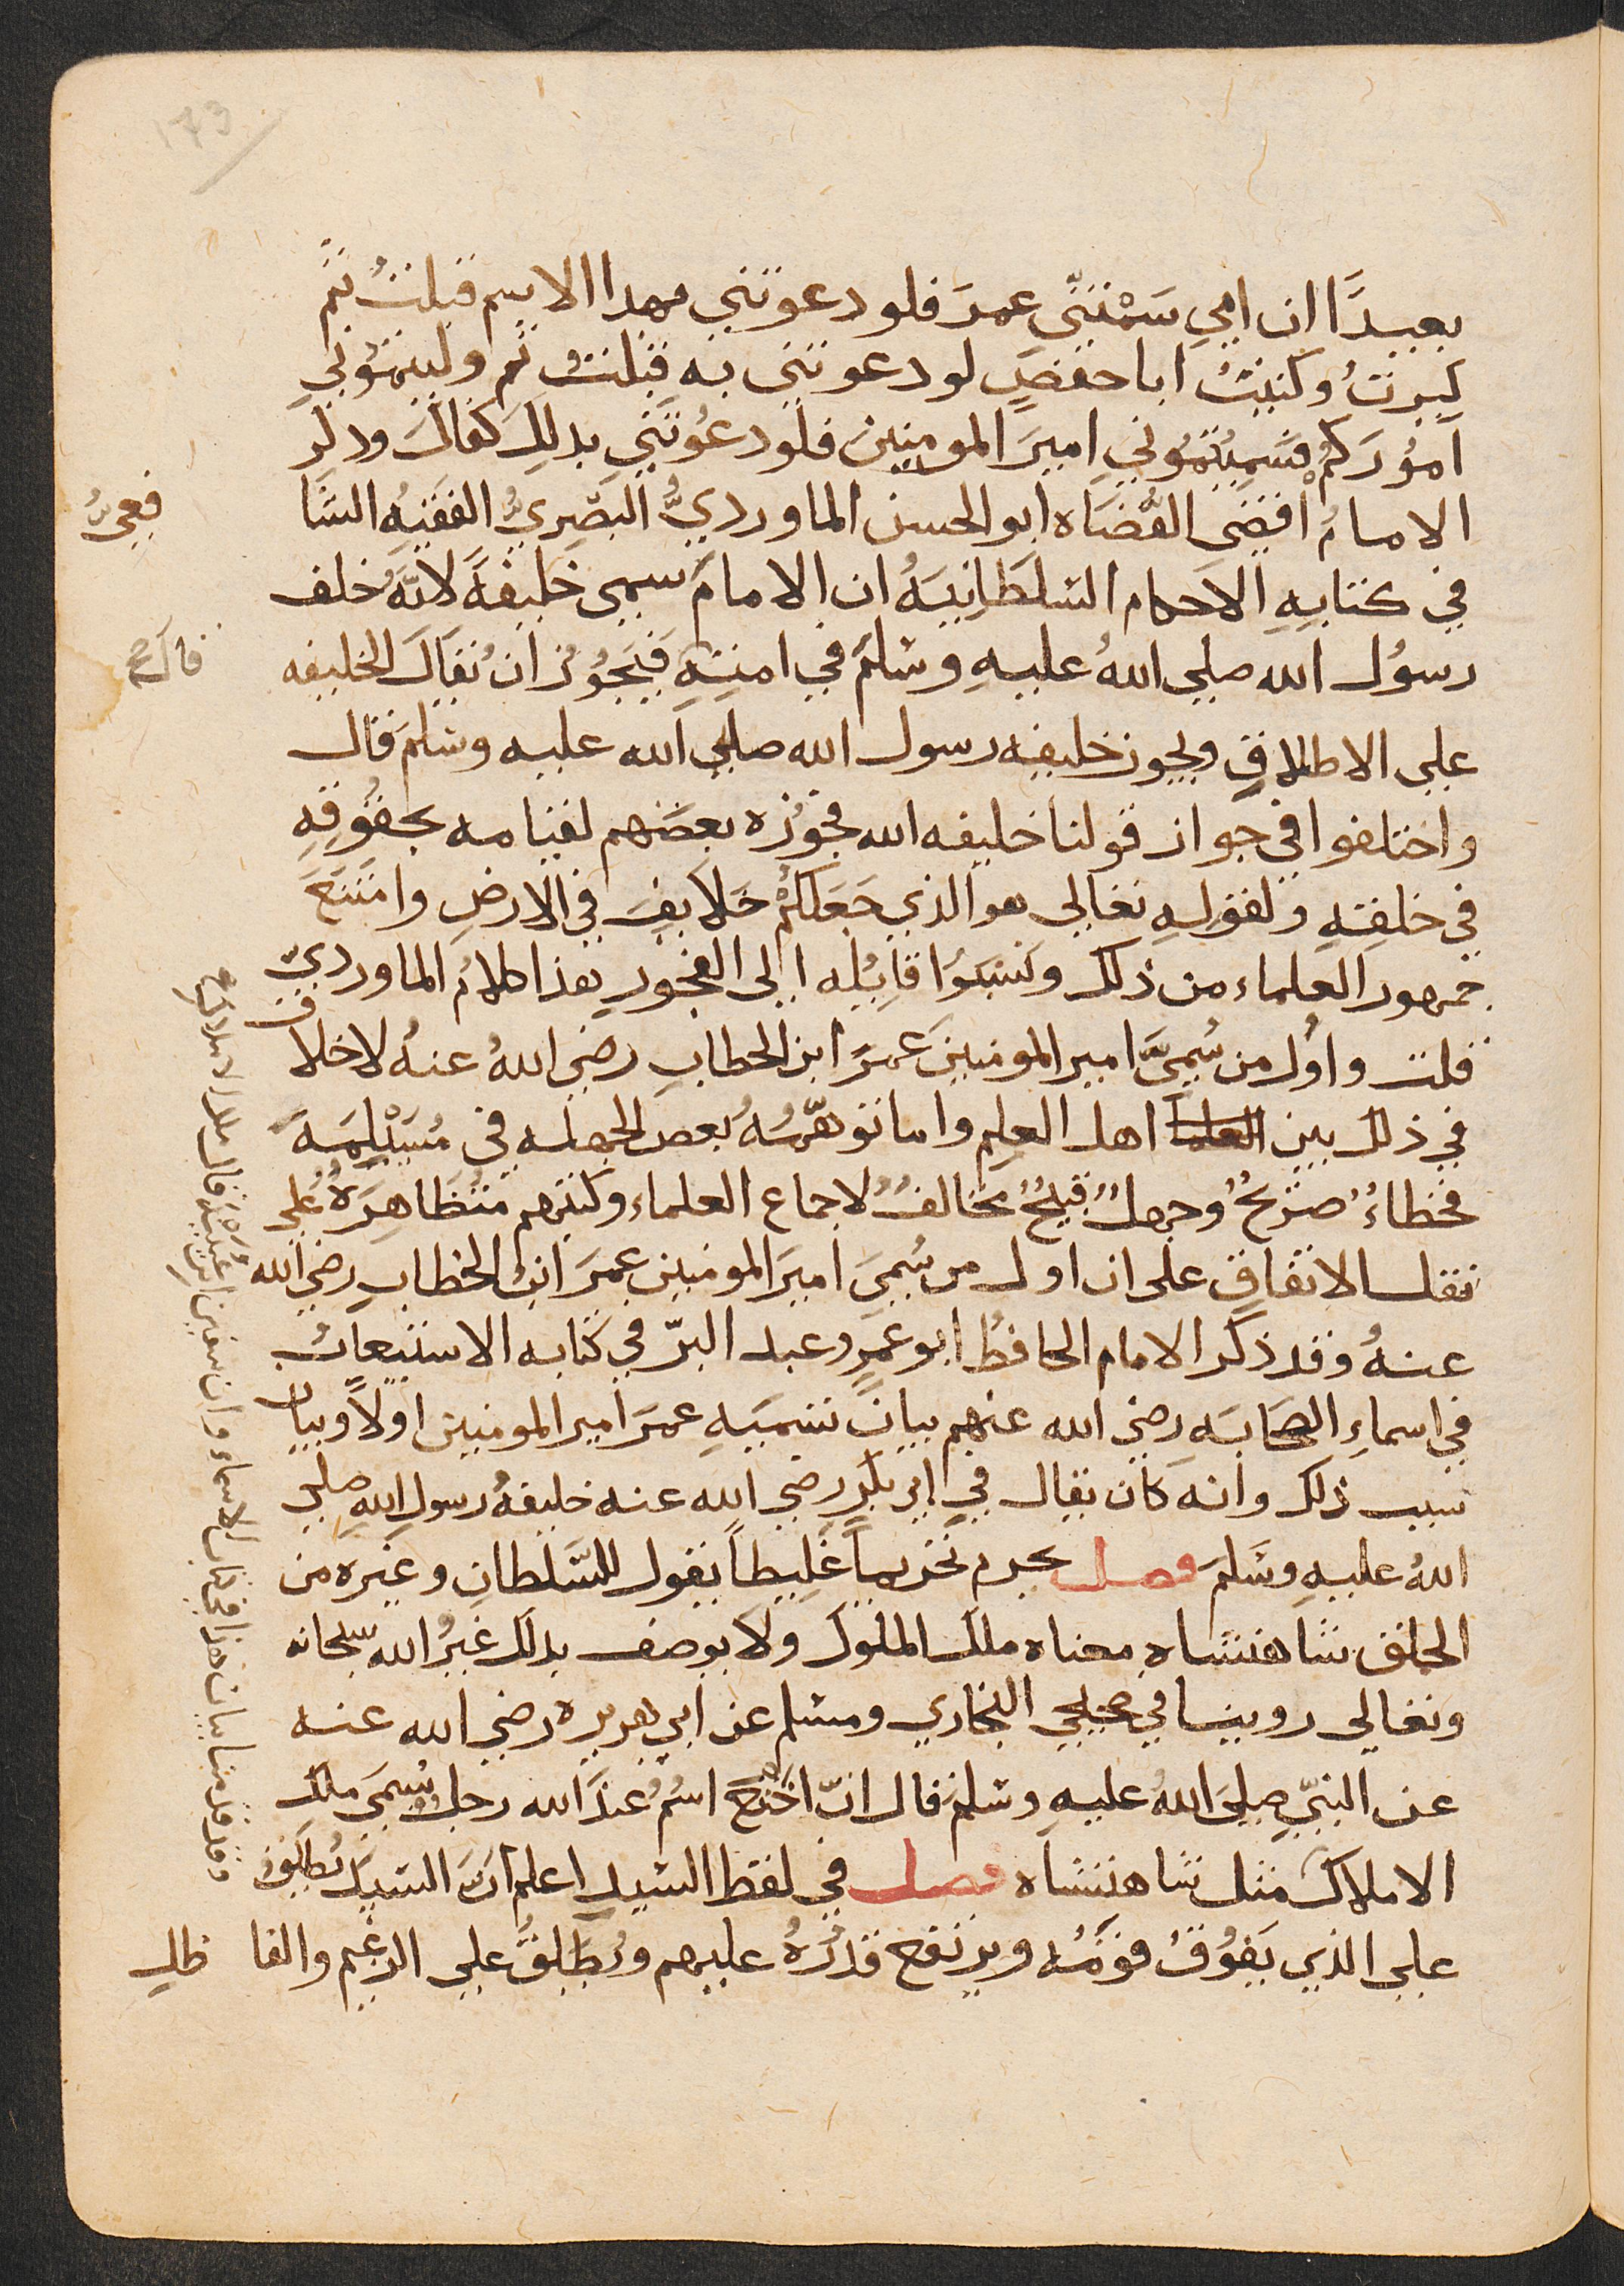 173
بعيدًا ان امي سَمَّتني عمرَ فلو دعوتني بهدا الاسم قبلتُ ثم
كبرتُ وكنيتُ ابا حفصٍ لو دعوتني به قبلتُ ثم وليتموني
اموُرَكمْ فسَميتمُوني اميرَ المومنين فلو دعُوتَني بدلِكَ كفاكَ ودكر
الامامُ اقضى القُضَاه ابو الحسن الماورديُّ البَصْرِيُّ الفقيهُ الشَّا
فعيُّ
في كتابهِ الاحكام السُلطَانيَهُ ان الامامَ سمي خليفهً لانّهُ خلف
رسوُل الله صلي اللهُ عليهِ وسَلم في امتِهِ فيَجُوُزُ ان يُقَاَل الخليفه
قال صح
علي الاطلاقِ ويجوز خليفه رسول الله صلي الله عليه وسَلمَ قال
واختلفوا في جواز قولنا خليفه الله فجوُزه بعضهم لقيامه بحقُوقهِ
في خلقهِ ولقولهِ تعالي هو الذي جَعَلكمُْ خَلايفَ في الارضِ وامتَنَعَ
جمهور العُلماء من ذلك ونسَبوُا قايُله الي الفجُورِ هذا كلامُ الماورديّ
قلت واوُل من سُميَّ امير المومنينَ عمرَ ابن الخطابِ رضي اللهُ عنهُ لا خلاف
في ذلك بين العلما اهل العلم واما توهّمهُ بعض الجهلهِ في مُسَيْلِمَهَ
فخطاءُ صَريحُ وجهلُ قبيحُ مخالفُ لاجماع العلماء وكتبهم مُتظَاهِرَهُ علي
نقل الاتفاقِ على ان اول من سُمِيَ اميرَ المومنين عمرَ ابن الخطابِ رضي الله
عنهُ وقد ذكر الامام الحافظُ ابو عمرو عبد البرّ في كتابه الاستيعاب
في اسماءِ الصَحابَه رضي الله عنهم بيانَ تسميَهِ عمرَ امير المومنين اولاً وبيان
سبب ذلك وانه كان يقال في ابي بكرٍ رضي الله عنه خليفهُ رسولِ اللهِ صلي
اللهُ عليهِ وسَلمَ فصل يحرم تحريماً غَلِيظاً يقول للسّلطانِ وغيره من
الخلق شاهنشاه معناه ملك الملوك ولا يوصف بدلك غيرُ الله سبحانه
وتعالي روينا في صحيحي البخاري ومسلم عن ابي هريره رضي الله عنه
عن النبيِّ صلي اللهُ عليهِ وسَلمَ قال انّ اخنَع اسُمُ عندَ الله رجل يُسَمىَ ملك
الاملاك مثل شاهنشاه فصل في لفظ السَيدِ اعلم انَّ السَيدَ يُطلق
علي الذي يَفوُقُ قومَهُ ويرتفع قدرُهُ عليهم ويُطَلقُ علي الزعيم والفا ظل
وقد قدمنا بيان هذا في كتاب الاسماء وان سفين ابن عُيَيْنهَ قال ملك الاملاك